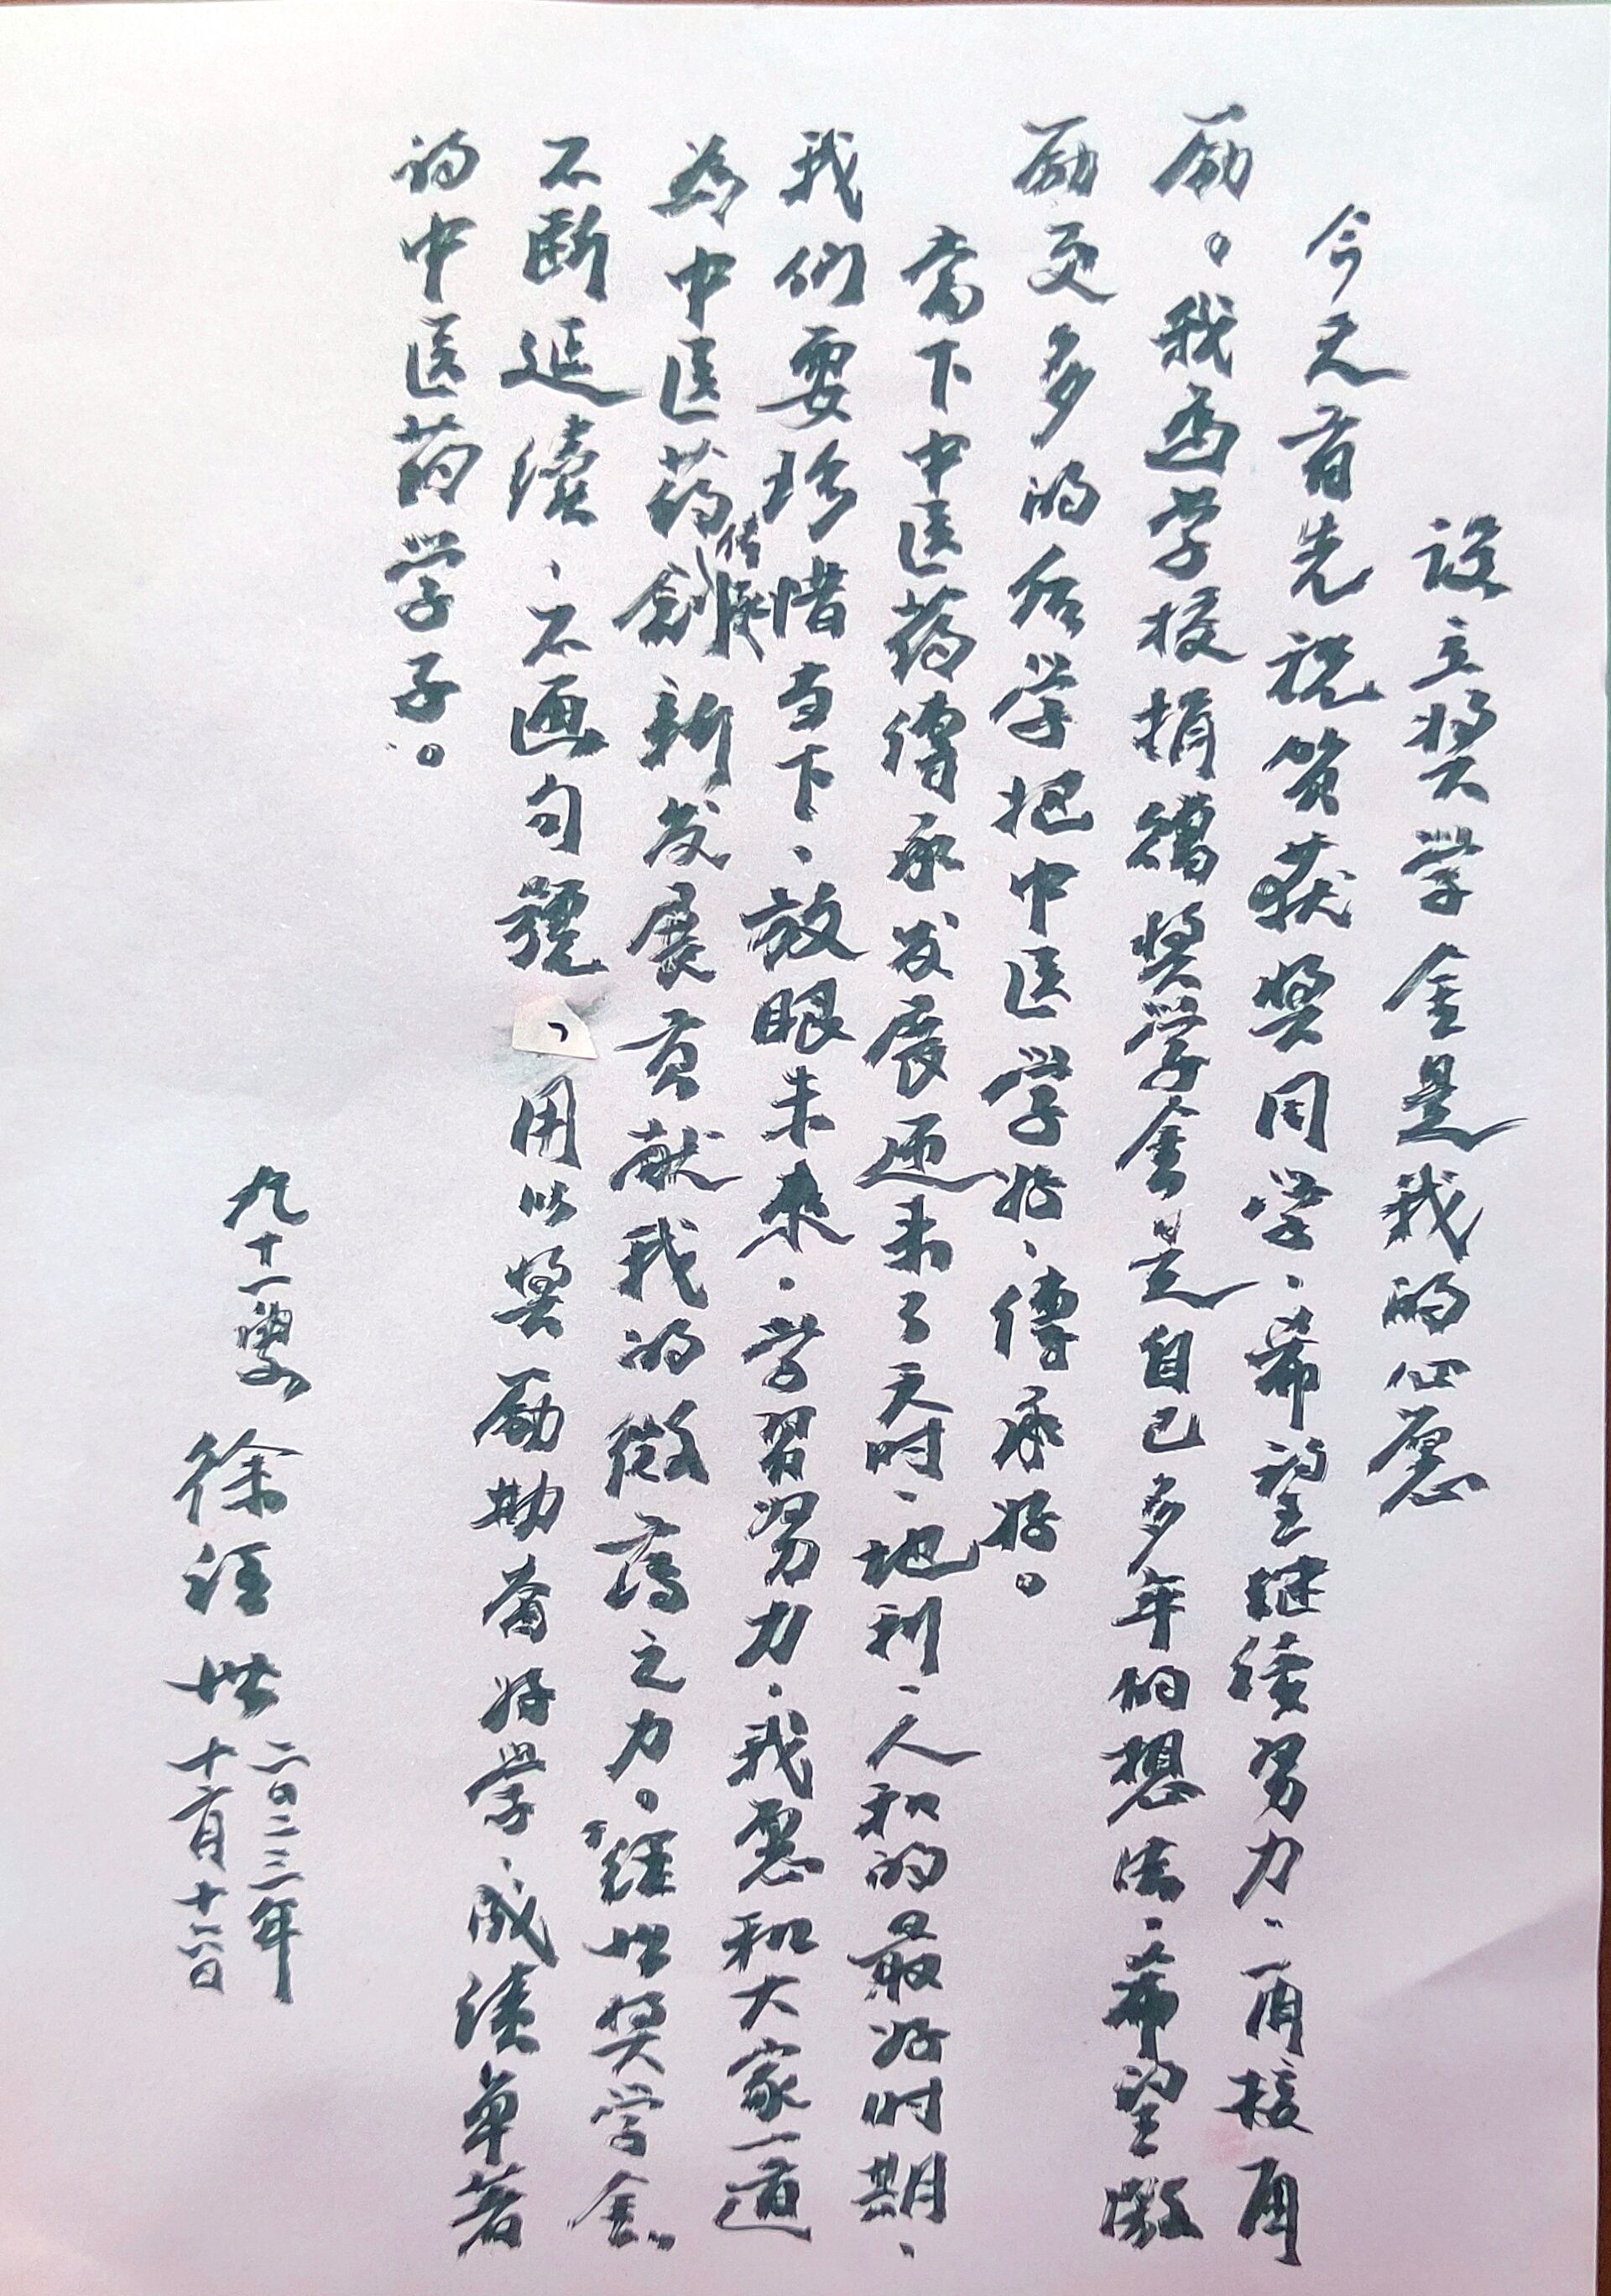 设立奖学金是我的心愿
今天首先祝贺获奖同学、希望继续努力、再接再
励。我为学校捐鐫奖学金是自己多年的想法、希望激
励更多的后学把中医学好、傳承好。
当下中医药傳承发展迎来了天时、地利、人和的最好时期、
我们要珍惜当下、放眼未来、学習努力、我愿和大家一道
为中医药传承創新发展贡献我的微薄之力。“经世奖学金”
不断延續、不画句號、用以奖励勤奋好学、成绩卓著
的中医药学子。
九十一叟 徐经世 二〇二三年
十二月十六日